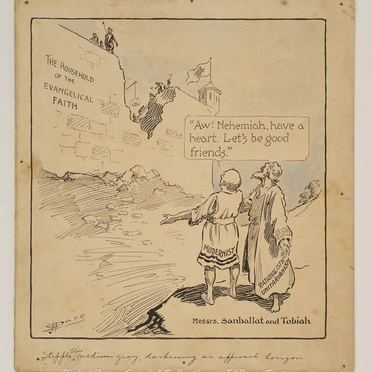 THE HOUSEHOLD
OF THE
EVANGELICAL
FAITH
"Aw! Nehemiah, have a
heart. Let's be good
friends."
MODERNIST
RATIONALISTIC
UNITARIANISM
Messrs. Sanballat and Tobiah
Stipple medium gray, darkening as approach horizon